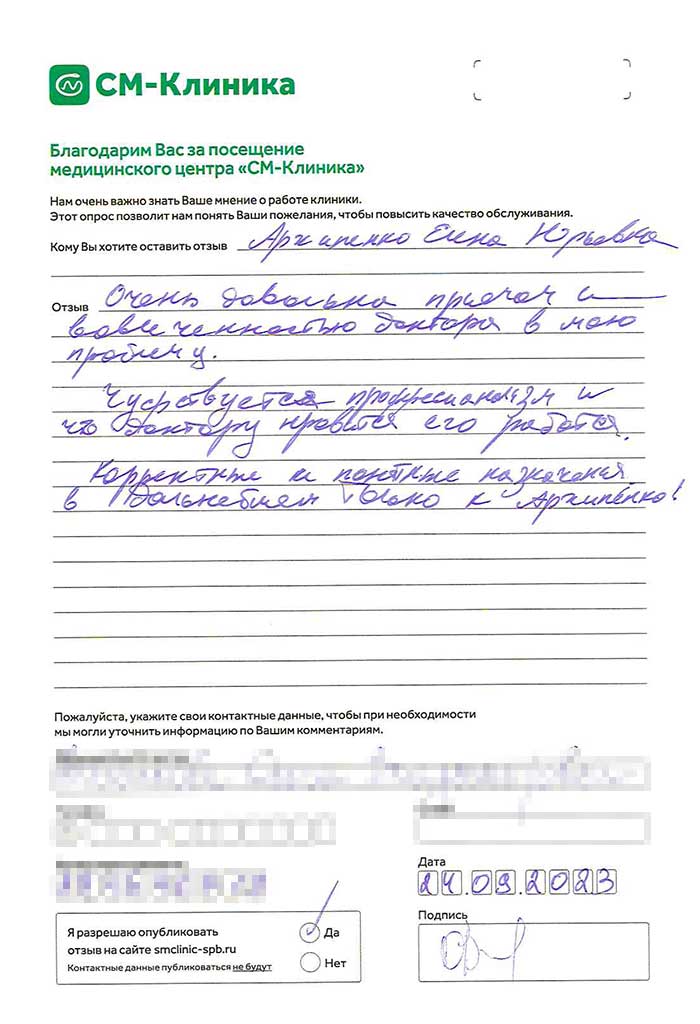 СМ-Клиника
Благодарим Вас за посещение
медицинского центра «СМ-Клиника»
Нам очень важно знать Ваше мнение о работе клиники.
Этот опрос позволит нам понять Ваши пожелания, чтобы повысить качество обслуживания.
Кому Вы хотите оставить отзыв Архипенко Елена Юрьевна
Отзыв Очень довольна приемом и
вовлеченностью доктора в мою
проблему.
Чувствуется профессионализм и
что доктору нравится его работа.
Корректные и понятные назначения.
в дальнейшем только к Архипенко!
Пожалуйста, укажите свои контактные данные, чтобы при необходимости
мы могли уточнить информацию по Вашим комментариям.
Дата
24.09.2023
Подпись
Я разрешаю опубликовать
отзыв на сайте smclinic-spb.ru
Контактные данные публиковаться не будут
Да
Нет